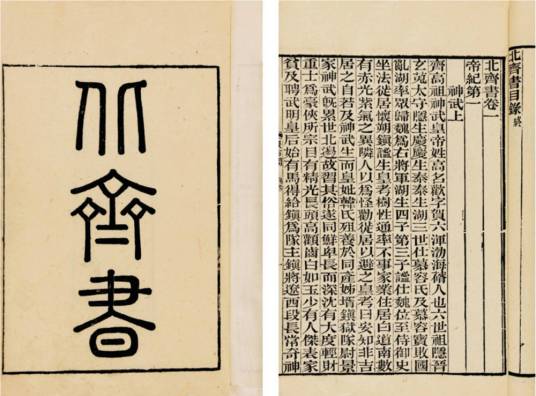 北齊書
北齊書目錄 終
北齊書卷一
帝紀第一
神武上
齊高祖神武皇帝姓高名歡字賀六渾渤海蓨人也六世祖隱晉
玄菟太守隱生慶慶生泰泰生湖三世仕慕容氏及慕容寶敗國
亂湖率眾歸魏爲右將軍湖生四子第三子謐仕魏位至侍御史
坐法徙居懷朔鎮謐生皇考樹性通率不事家業住居白道南數
有赤光紫氣之異隣人以爲怪勸徙居以避之皇考曰安知非吉
居之自若及神武生而皇妣韓氏殂養於同產姊壻鎮獄隊尉景
家神武既累世北邊故習其俗遂同鮮卑長而深沈有大度輕財
重士爲豪俠所宗目有精光長頭高顴齒白如玉少有人傑表家
貧及聘武明皇后始有馬得給鎮爲隊主鎮將遼西段長常奇神